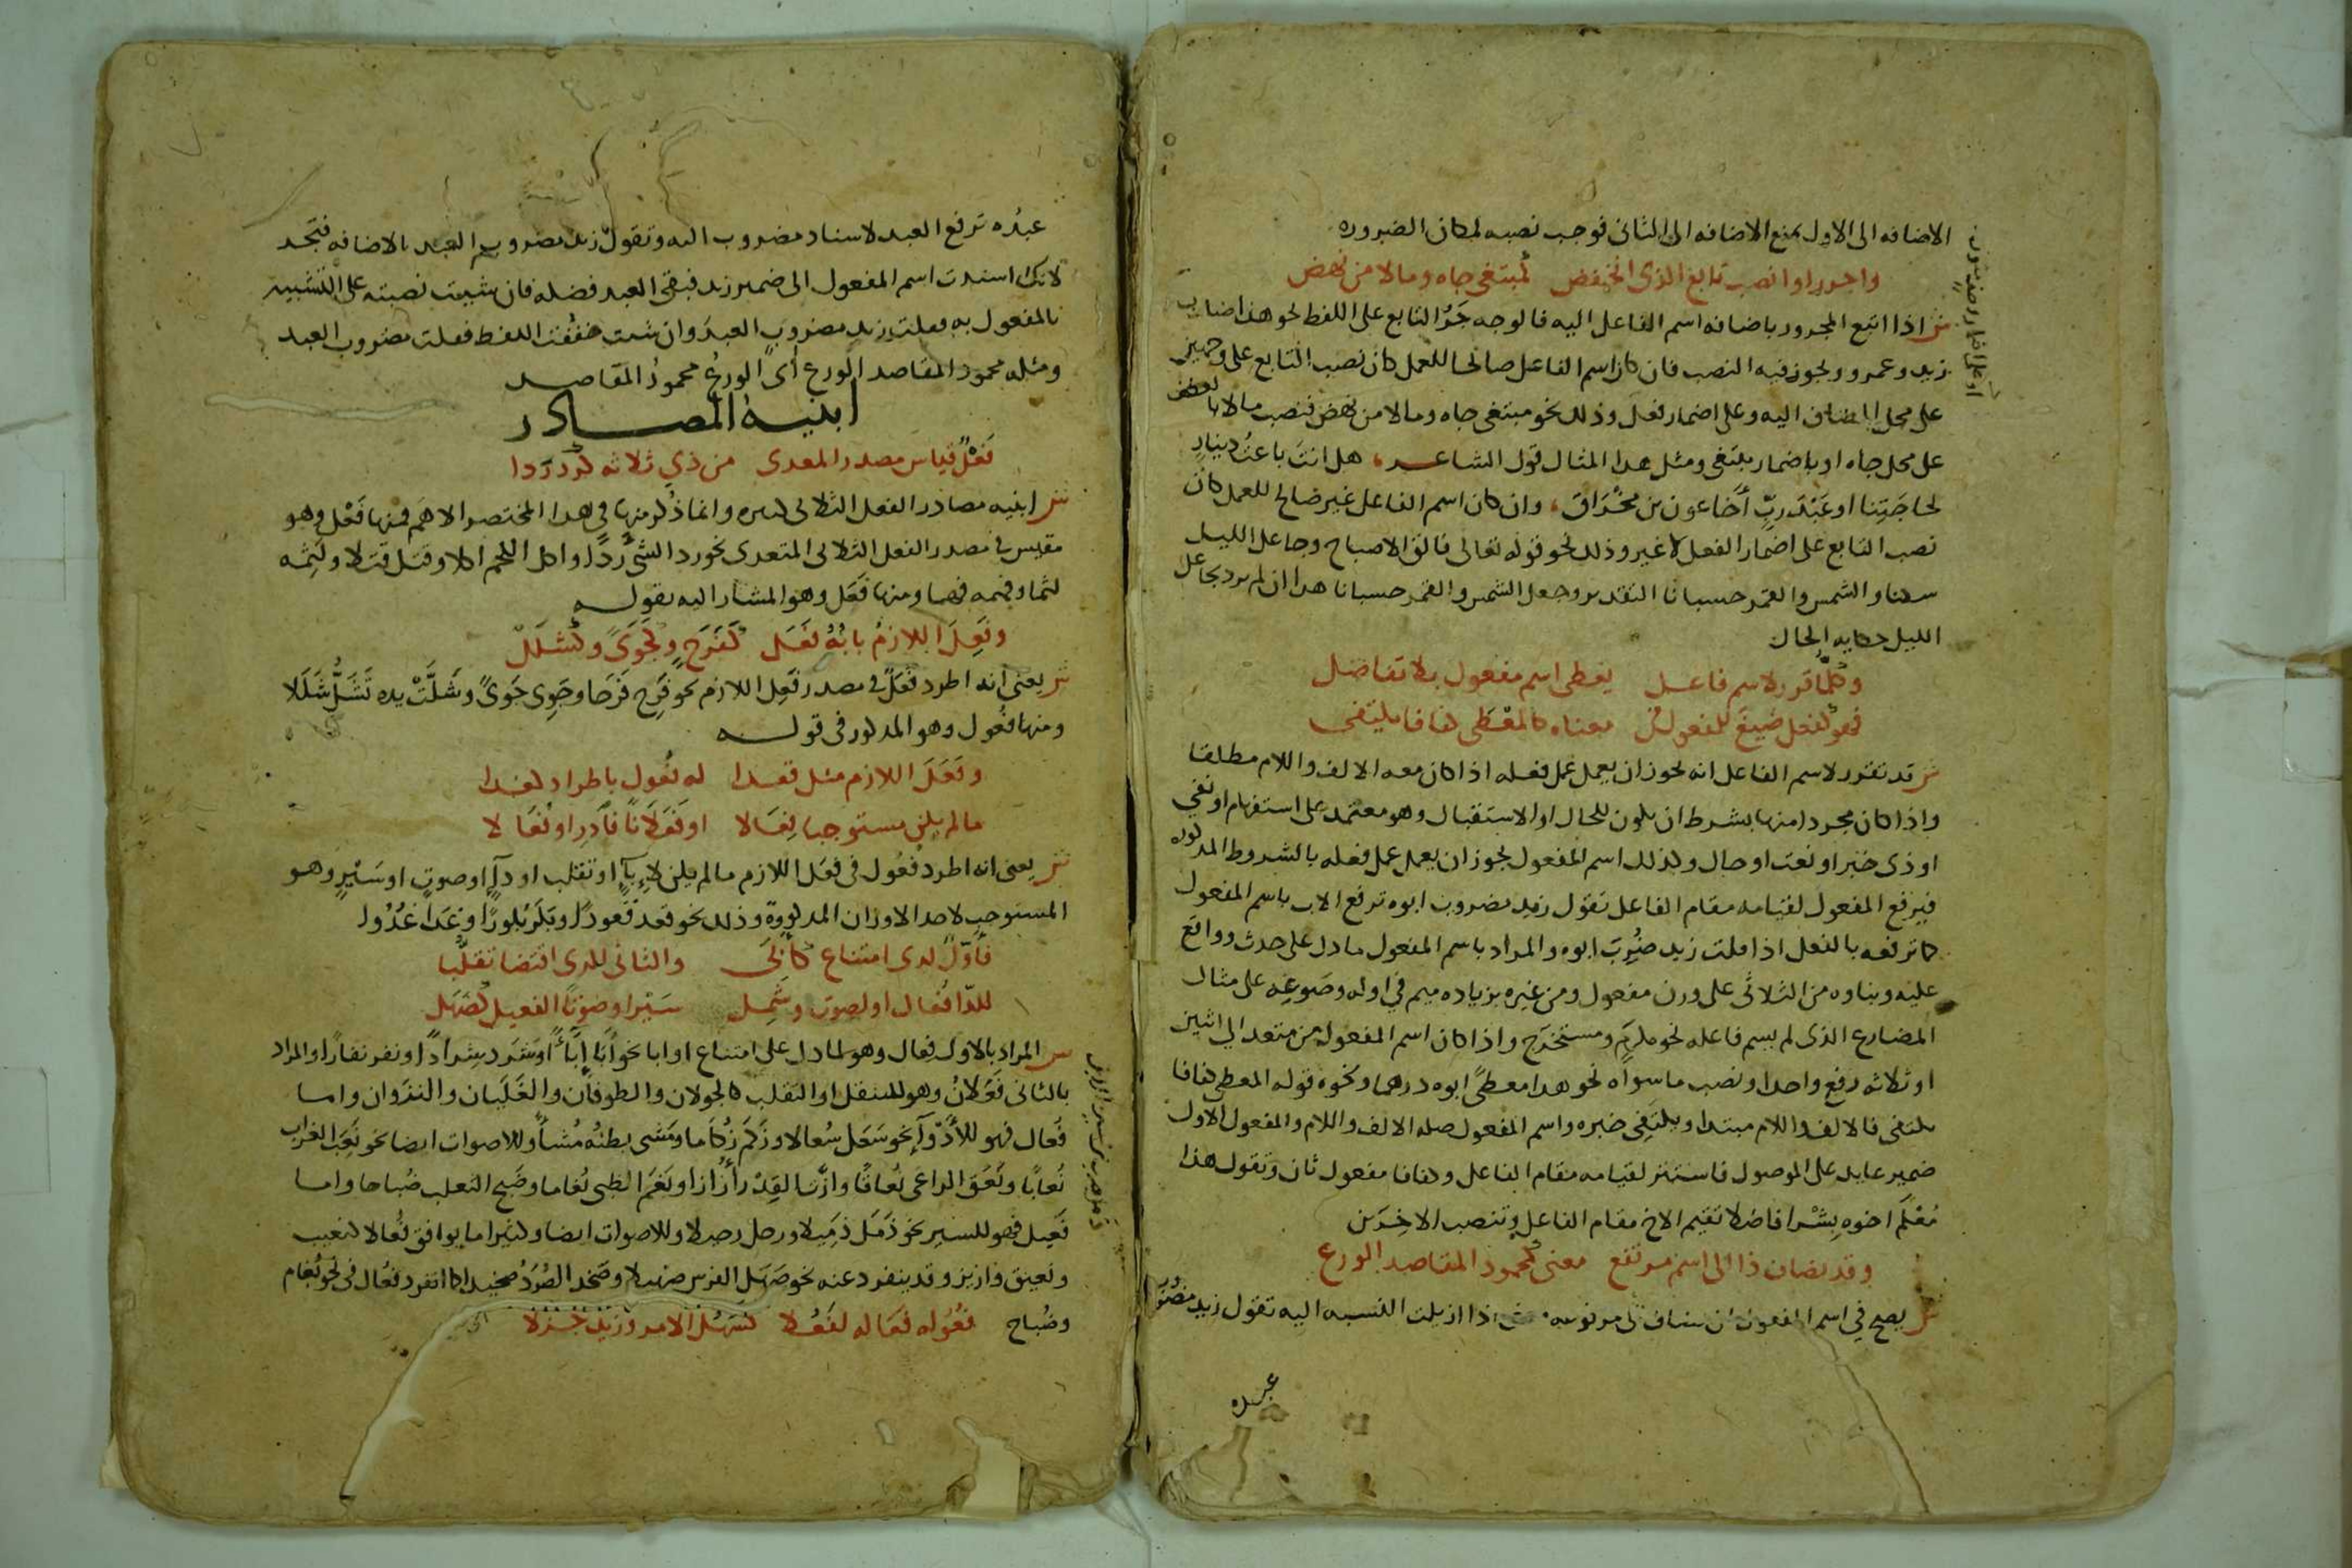 الاضافه الى الاول تمنع الاضافه الى الثانى فوجب نصبه لمكان الضروره
واجرر او انصب تابع الذى انخفض كمبتغى جاه ومالا من نهض
ش اذا اتبع المجرور باضافه اسم الفاعل اليه فالوجه جر التابع على اللفظ نحو هذا ضارب
زيد وعمرو ويجوز فيه النصب فان كان اسم الفاعل صالحا للعمل كان نصب التابع على وجهين
على محل المضاف اليه وعلى اضمار فعل وذلك نحو مبتغى جاه ومالا من نهض فنصب مالا بالعطف
على محل جاه او باضمار يبتغى ومثل هدا المثال قول الشاعر هل انت باعث دينار
لحاجتنا او عبد رب أخا عون بن مخراق وان كان اسم الفاعل غير صالح للعمل كان
نصب التابع على اضمار الفعل لا غير وذلك نحو قوله تعالى فالق الاصباح وجاعل الليل
سكنا والشمس والقمر حسبانا التقدير وجعل الشمس والقمر حسبانا هدا ان لم يرد بجاعل
الليل حكايه الحال
وكلما قرر لاسم فاعل يعطى اسم مفعول بلا تفاضل
فهو كفعل صيغ للمفعول فى معناه كالمعطى كفافا يكتفى
ش قد تقرر لاسم الفاعل انه يجوز ان يعمل عمل فعله اذا كان معه الالف واللام مطلقا
واذا كان مجردا منها بشرط ان يكون للحال او الاستقبال وهو معتمد على استفهام او نفي
او ذى خبر او نعت او حال وكذلك اسم المفعول يجوز ان يعمل عمل فعله بالشروط المذكوره
فيرفع المفعول لقيامه مقام الفاعل تقول زيد مضروب ابوه ترفع الاب باسم المفعول
كما ترفعه بالفعل اذا قلت زيد ضرب ابوه والمراد باسم المفعول ما دل على حدث وواقع
عليه وبناوه من الثلاثى على وزن مفعول ومن غيره بزياده ميم في اوله وصوغه على مثال
المضارع الذى لم يسم فاعله نحو مكرم ومستخرج واذا كان اسم المفعول من متعد الى اثنين
او ثلاثه رفع واحدا ونصب ما سواه نحو هدا معطى ابوه درهما ونحوه قوله المعطى كفافا
يكتفى فالالف واللام مبتدا ويكتفى خبره واسم المفعول صله الالف واللام والمفعول الاول
ضمير عايد على الموصول فاستتر لقيامه مقام الفاعل وكفافا مفعول ثان وتقول هذا
معلم اخوه بشرا فاضلا تقيم الاخ مقام الفاعل وتنصب الاخرين
وقد يضاف ذا الى اسم مرتفع معنى كمحمود المقاصد الورع
ش يصح في اسم المفعول ان يضاف الى مرفوعه اذا ازيلت النسبه اليه تقول زيد مضروب
عبده
عبده ترفع العبد لاسناد مضروب اليه وتقول زيد مضروب العبد بالاضافه فتجد
لانك اسندت اسم المفعول الى ضمير زيد فبقى العبد فضله فان شيت نصبته على التشبيه
بالمفعول به فقلت زيد مضروب العبد وان شت خففت اللفظ فقلت مضروب العبد
ومثله محمود المقاصد الورع أى الورع محمود المقاصد
ابنيه المصادر
فعل قياس مصدر المعدى من ذي ثلاثه كرد ردا
ش ابنيه مصادر الفعل الثلاثى كثيره وانما ذكر منها في هدا المختصر الاهم فمنها فعل وهو
مقيس في مصدر الفعل الثلاثى المتعدى نحو رد الشى ردا واكل اللحم اكلا وقتل قتلا ولثمه
لثما وفهمه فهما ومنها فعل وهو المشار اليه بقوله
وفعل اللازم بابه فعل كفرح وكجوى وكشلل
ش يعنى انه اطرد فعل فى مصدر فعل اللازم نحو فرح فرحا وجوى جوى وشلت يده تشل شللا
ومنها فعول وهو المدكور فى قوله
وفعل اللازم مثل قعدا له فعول باطراد كغدا
ما لم يكن مستوجبا فعالا او فعلانا فادر او فعالا
ش يعنى انه اطرد فعول فى فعل اللازم ما لم يكن لإباء او تقلب او داء او صوت او سير وهو
المستوجب لاحد الاوزان المدكورة وذلك نحو قعد قعودا وبكر بكورا وغدا غدوا
فأول لدى امتناع كأبى والثانى للدى اقتضا تقلبا
للدا فعال او لصوت وشمل سيرا وصوتا الفعيل كصهل
ش المراد بالاول فعال وهو لما دل على امتناع او ابا نحو أبا إباء او شرد شرادا ونفر نفارا والمراد
بالثانى فعلان وهو للتنقل او التقلب كالجولان والطوفان والغليان والنزوان واما
فعال فهو للأدواء نحو سعل سعالا وزكم زكاما ومشى بطنه مشاء وللاصوات ايضا نحو نعب الغراب
نعابا ونعق الراعى نعاقا وازت القدر أزازا وبغم الظبى بغاما وضبح الثعلب ضباحا واما
فعيل فهو للسير نحو ذمل ذميلا ورحل رحيلا وللاصوات ايضا وكثيرا ما يوافق فعالا كنعيب
ونعيق وازيز وقد ينفرد عنه نحو صهل الفرس صهيلا وصخد الصرد صخيدا كما انفرد فعال فى نحو بغام
وضباح فعوله فعاله لفعلا كسهل الامر وزيد جزلا